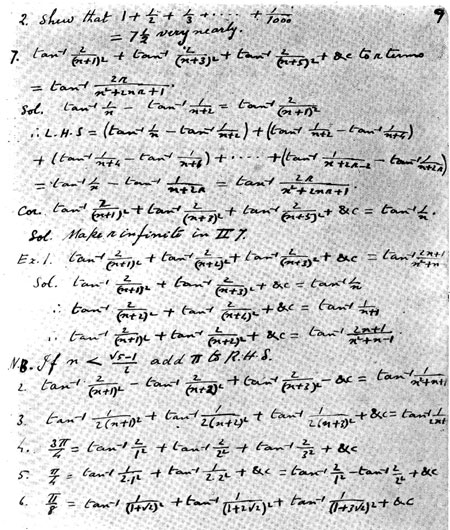 9
2. Shew that 1 + 1/2 + 1/3 + ····· + 1/1000
= 7 1/2 very nearly.
7. tan⁻¹ 2/(n+1)² + tan⁻¹ 2/(n+3)² + tan⁻¹ 2/(n+5)² + &c to r terms
= tan⁻¹ 2r/(n²+2nr+1).
Sol. tan⁻¹ 1/n − tan⁻¹ 1/(n+2) = tan⁻¹ 2/(n+1)²
∴ L.H.S = (tan⁻¹ 1/n − tan⁻¹ 1/(n+2)) + (tan⁻¹ 1/(n+2) − tan⁻¹ 1/(n+4))
+ (tan⁻¹ 1/(n+4) − tan⁻¹ 1/(n+6)) + ···· + (tan⁻¹ 1/(n+2r−2) − tan⁻¹ 1/(n+2r))
= tan⁻¹ 1/n − tan⁻¹ 1/(n+2r) = tan⁻¹ 2r/(n²+2nr+1).
Cor. tan⁻¹ 2/(n+1)² + tan⁻¹ 2/(n+3)² + tan⁻¹ 2/(n+5)² + &c = tan⁻¹ 1/n.
Sol. Make r infinite in II 7.
Ex. 1. tan⁻¹ 2/(n+1)² + tan⁻¹ 2/(n+2)² + tan⁻¹ 2/(n+3)² + &c = tan⁻¹ (2n+1)/(n²+n
Sol. tan⁻¹ 2/(n+1)² + tan⁻¹ 2/(n+3)² + &c = tan⁻¹ 1/n
∴ tan⁻¹ 2/(n+2)² + tan⁻¹ 2/(n+4)² + &c = tan⁻¹ 1/(n+1)
∴ tan⁻¹ 2/(n+1)² + tan⁻¹ 2/(n+2)² + &c = tan⁻¹ (2n+1)/(n²+n−1).
N.B. If n < (√5−1)/2 add π to R.H.S.
2. tan⁻¹ 2/(n+1)² − tan⁻¹ 2/(n+2)² + tan⁻¹ 2/(n+3)² − &c = tan⁻¹ 1/(n²+n+1
3. tan⁻¹ 1/2(n+1)² + tan⁻¹ 1/2(n+2)² + tan⁻¹ 1/2(n+3)² + &c = tan⁻¹ 1/(2n+
4. 3π/4 = tan⁻¹ 2/1² + tan⁻¹ 2/2² + tan⁻¹ 2/3² + &c
5. π/4 = tan⁻¹ 1/2·1² + tan⁻¹ 1/2·2² + &c = tan⁻¹ 2/1² − tan⁻¹ 2/2² + &c
6. π/8 = tan⁻¹ 1/(1+√2)² + tan⁻¹ 1/(1+2√2)² + tan⁻¹ 1/(1+3√2)² + &c